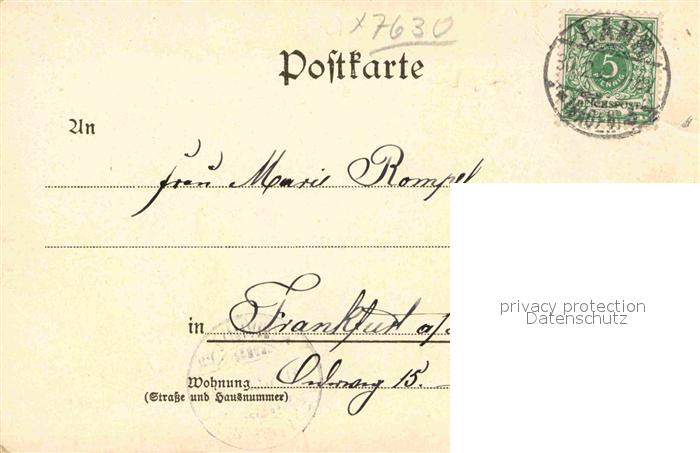 x7630
Postkarte
5
PFENNIG
REICHSPOST
An
Frau Marie Rompel
privacy protection
Datenschutz
in Frankfurt a/
Wohnung 15.
(Straße und Hausnummer)